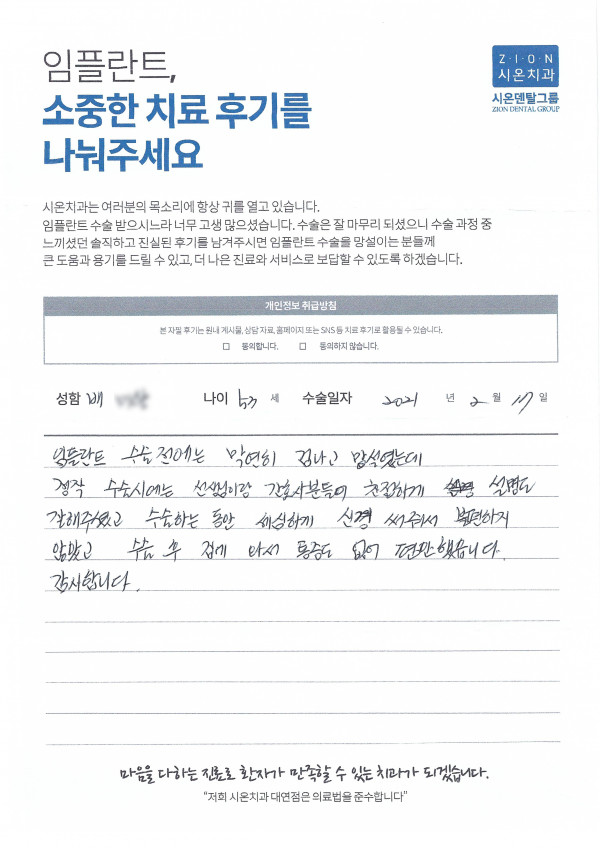 임플란트,
소중한 치료 후기를
나눠주세요
Z·I·O·N
시온치과
시온덴탈그룹
ZION DENTAL GROUP
시온치과는 여러분의 목소리에 항상 귀를 열고 있습니다.
임플란트 수술 받으시느라 너무 고생 많으셨습니다. 수술은 잘 마무리 되셨으니 수술 과정 중
느끼셨던 솔직하고 진실된 후기를 남겨주시면 임플란트 수술을 망설이는 분들께
큰 도움과 용기를 드릴 수 있고, 더 나은 진료와 서비스로 보답할 수 있도록 하겠습니다.
개인정보 취급방침
본 자필 후기는 원내 게시물, 상담 자료, 홈페이지 또는 SNS 등 치료 후기로 활용될 수 있습니다.
□ 동의합니다. □ 동의하지 않습니다.
성함 배 나이 53 세 수술일자 2021 년 2 월 17 일
임플란트 수술전에는 막연히 겁나고 망설였는데
정작 수술시에는 선생님이랑 간호사분들이 친절하게 설명도
잘해주셨고 수술하는 동안 세심하게 신경 써주셔서 불편하지
않았고 수술 후 집에 와서 통증도 없이 편안했습니다.
감사합니다.
마음을 다하는 진료로 환자가 만족할 수 있는 치과가 되겠습니다.
"저희 시온치과 대연점은 의료법을 준수합니다"